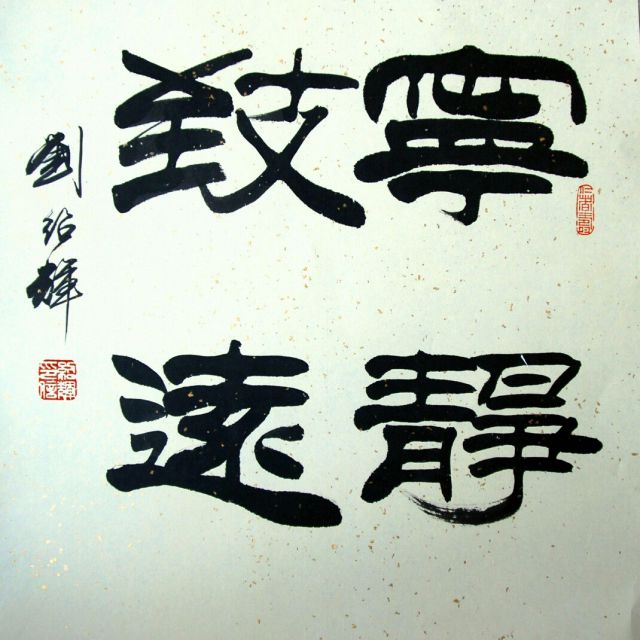 寧靜
致遠
劉紹輝